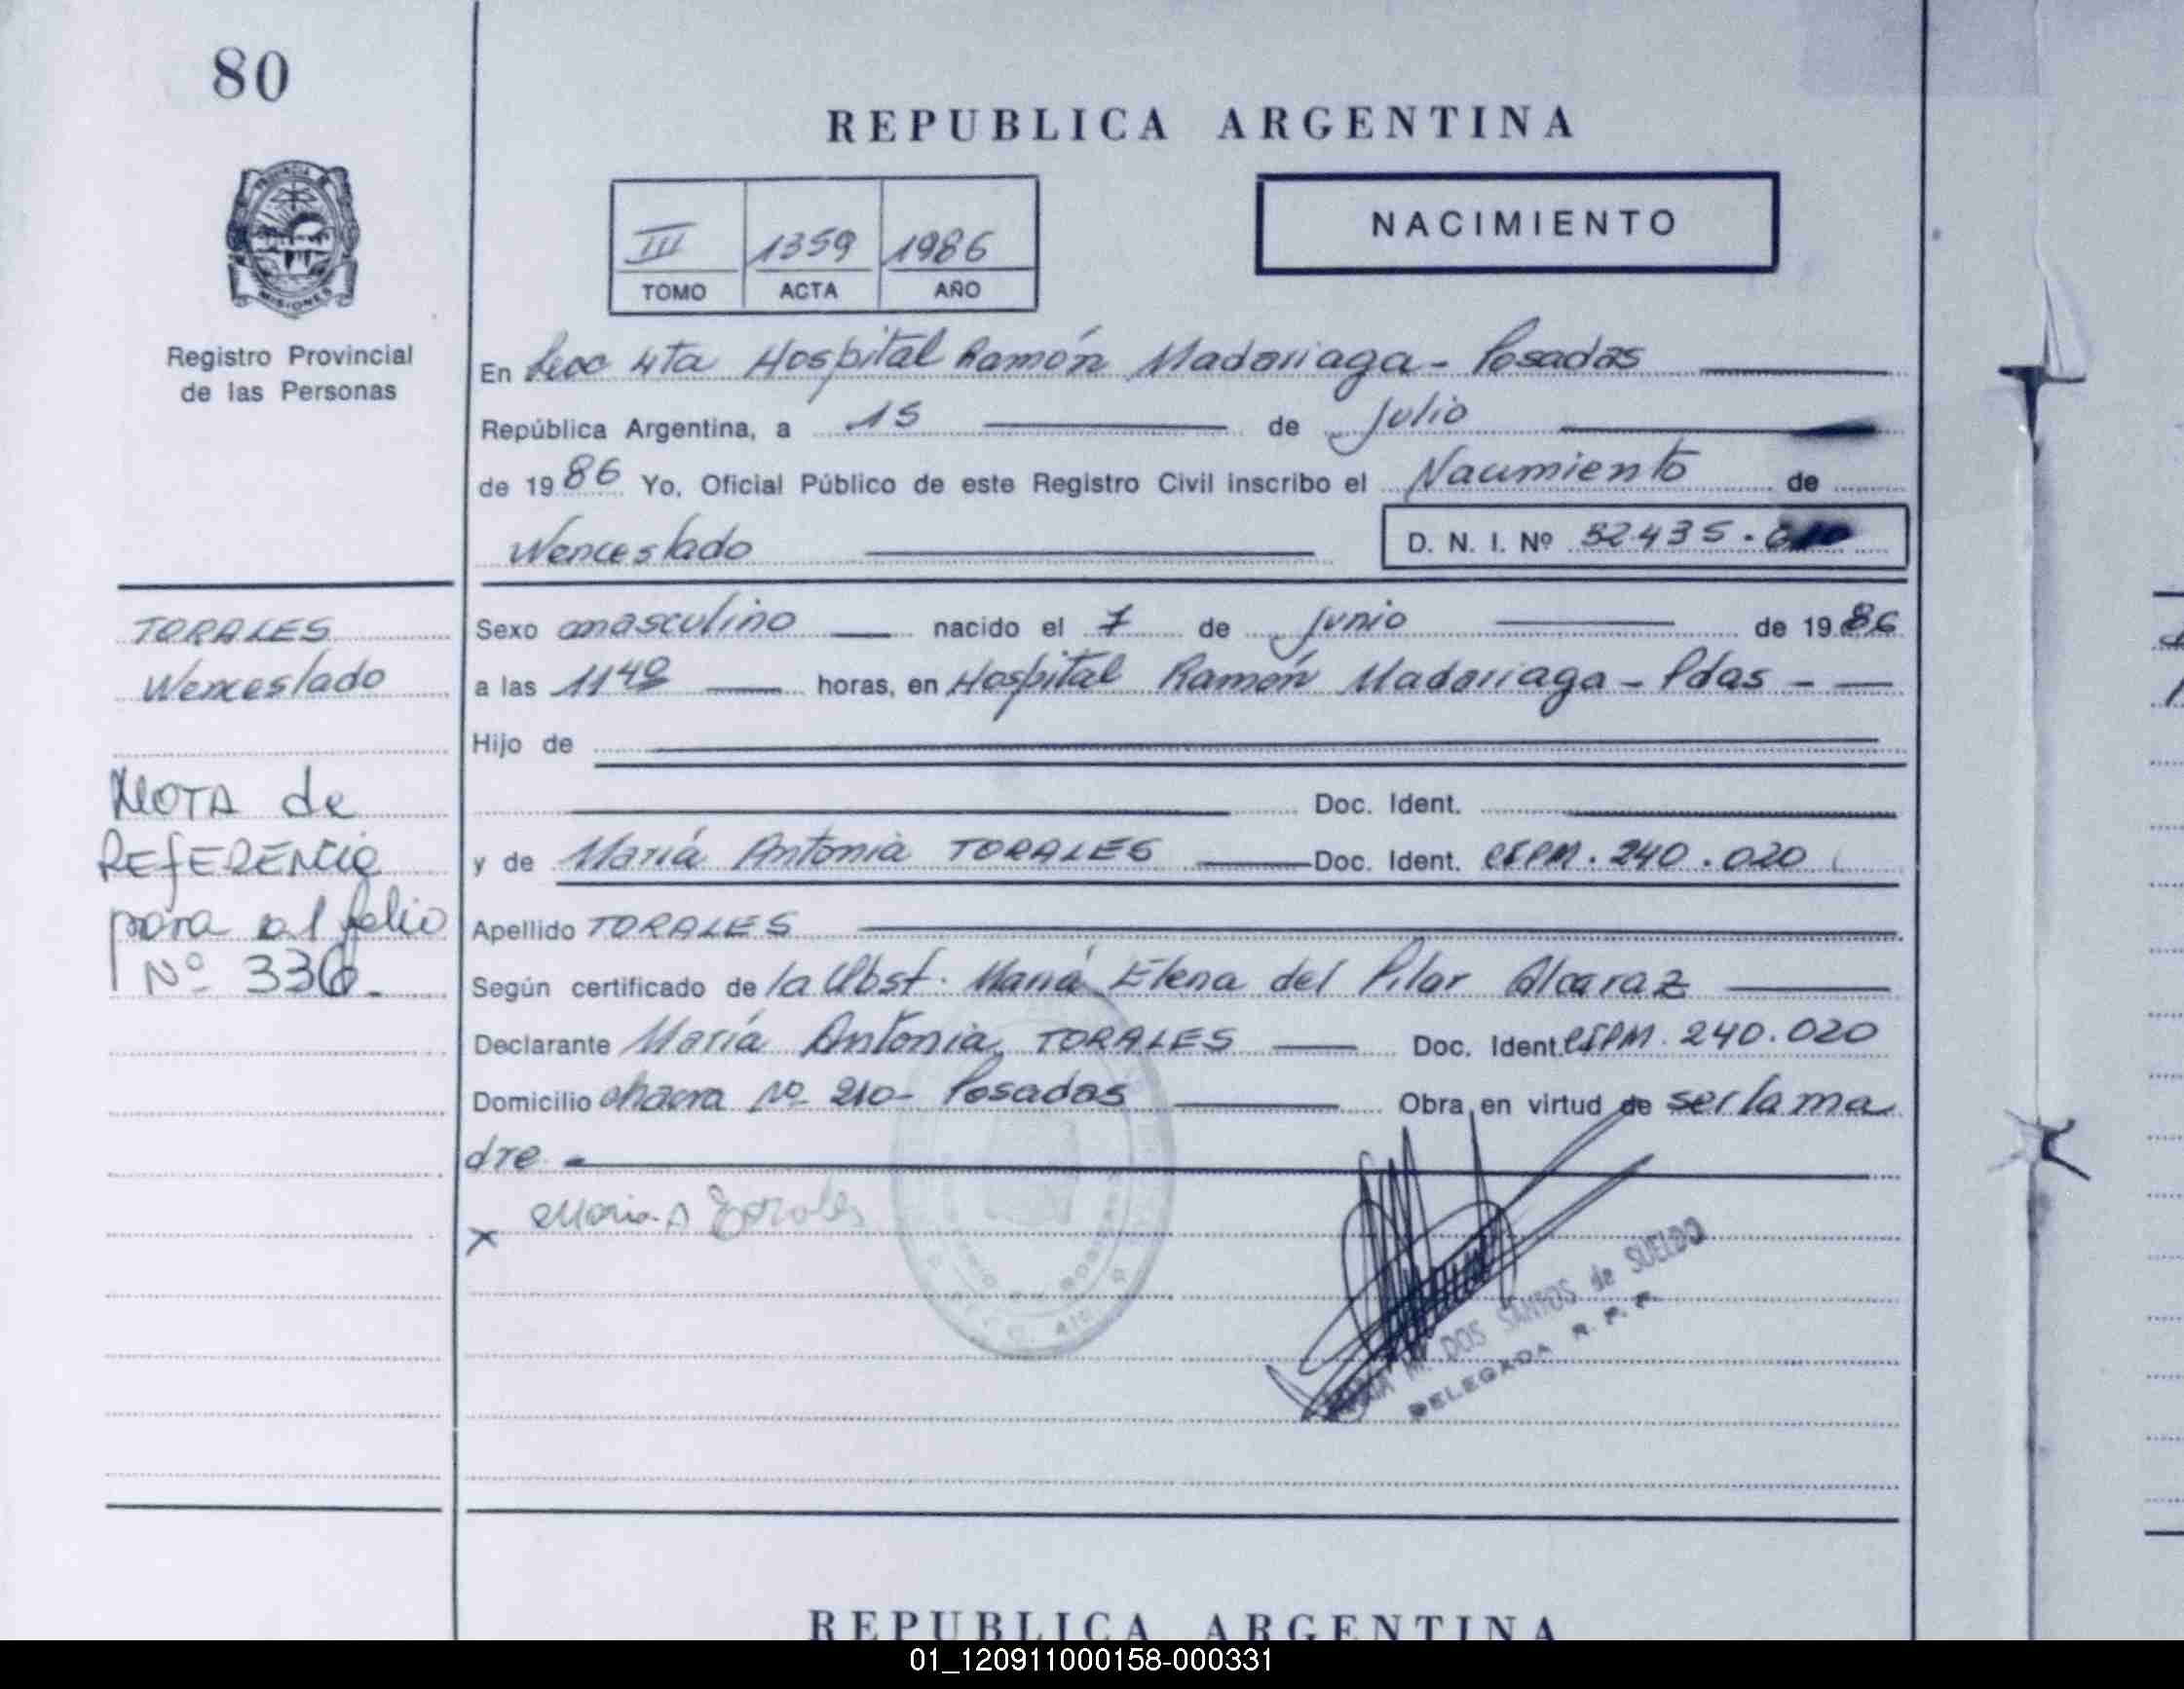 80
REPUBLICA ARGENTINA
PROVINCIA DE
MISIONES
Registro Provincial
de las Personas
III 1359 1986
TOMO ACTA AÑO
NACIMIENTO
En Secc 4ta Hospital Ramón Madariaga - Posadas
República Argentina, a 15 de Julio
de 1986 Yo, Oficial Público de este Registro Civil inscribo el Nacimiento de
Wenceslado D. N. I. Nº 32.435.
TORALES
Wenceslado
NOTA de
REFERENCIA
para al folio
Nº 336.
Sexo masculino nacido el 7 de junio de 1986
a las 11 40 horas, en Hospital Ramón Madariaga - Pdas -
Hijo de
Doc. Ident.
y de María Antonia TORALES Doc. Ident. CIPM. 240.020
Apellido TORALES
Según certificado de la Obst. María Elena del Pilar Alcaraz
Declarante María Antonia TORALES Doc. Ident. CIPM. 240.020
Domicilio chacra Nº 210 - Posadas Obra en virtud de ser la ma
dre -
x Maria A Torales
M. DOS SANTOS de SUELDO
DELEGADA R. P. P.
REPUBLICA ARGENTINA
01_120911000158-000331